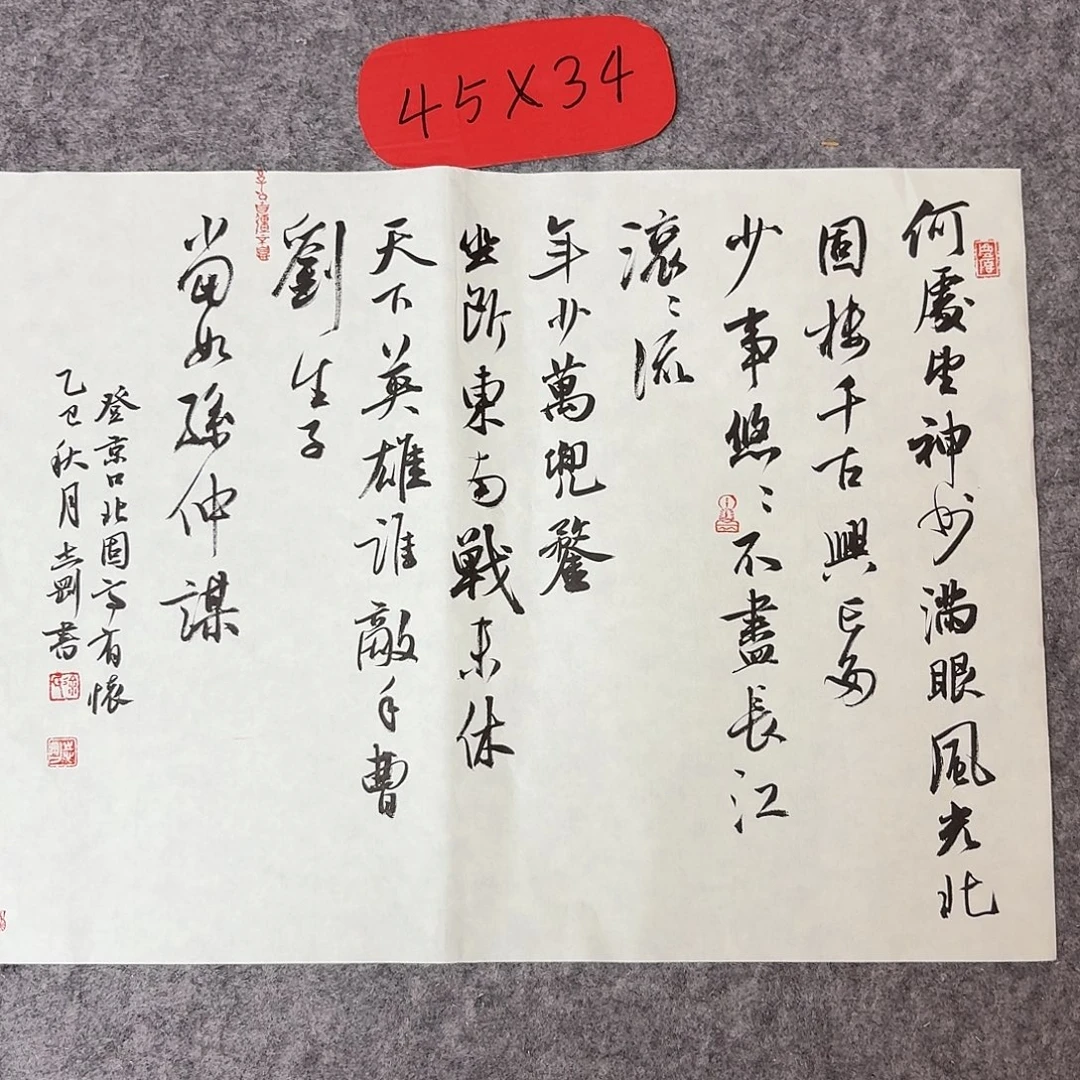 45X34
何處望神州滿眼風光北
固樓千古興亡多
少事悠〻不盡長江
滾〻流
年少萬兜鍪
坐断東南戰未休
天下英雄誰敵手曹
劉生子
當如孫仲謀
登京口北固亭有懷
乙巳秋月志剛書